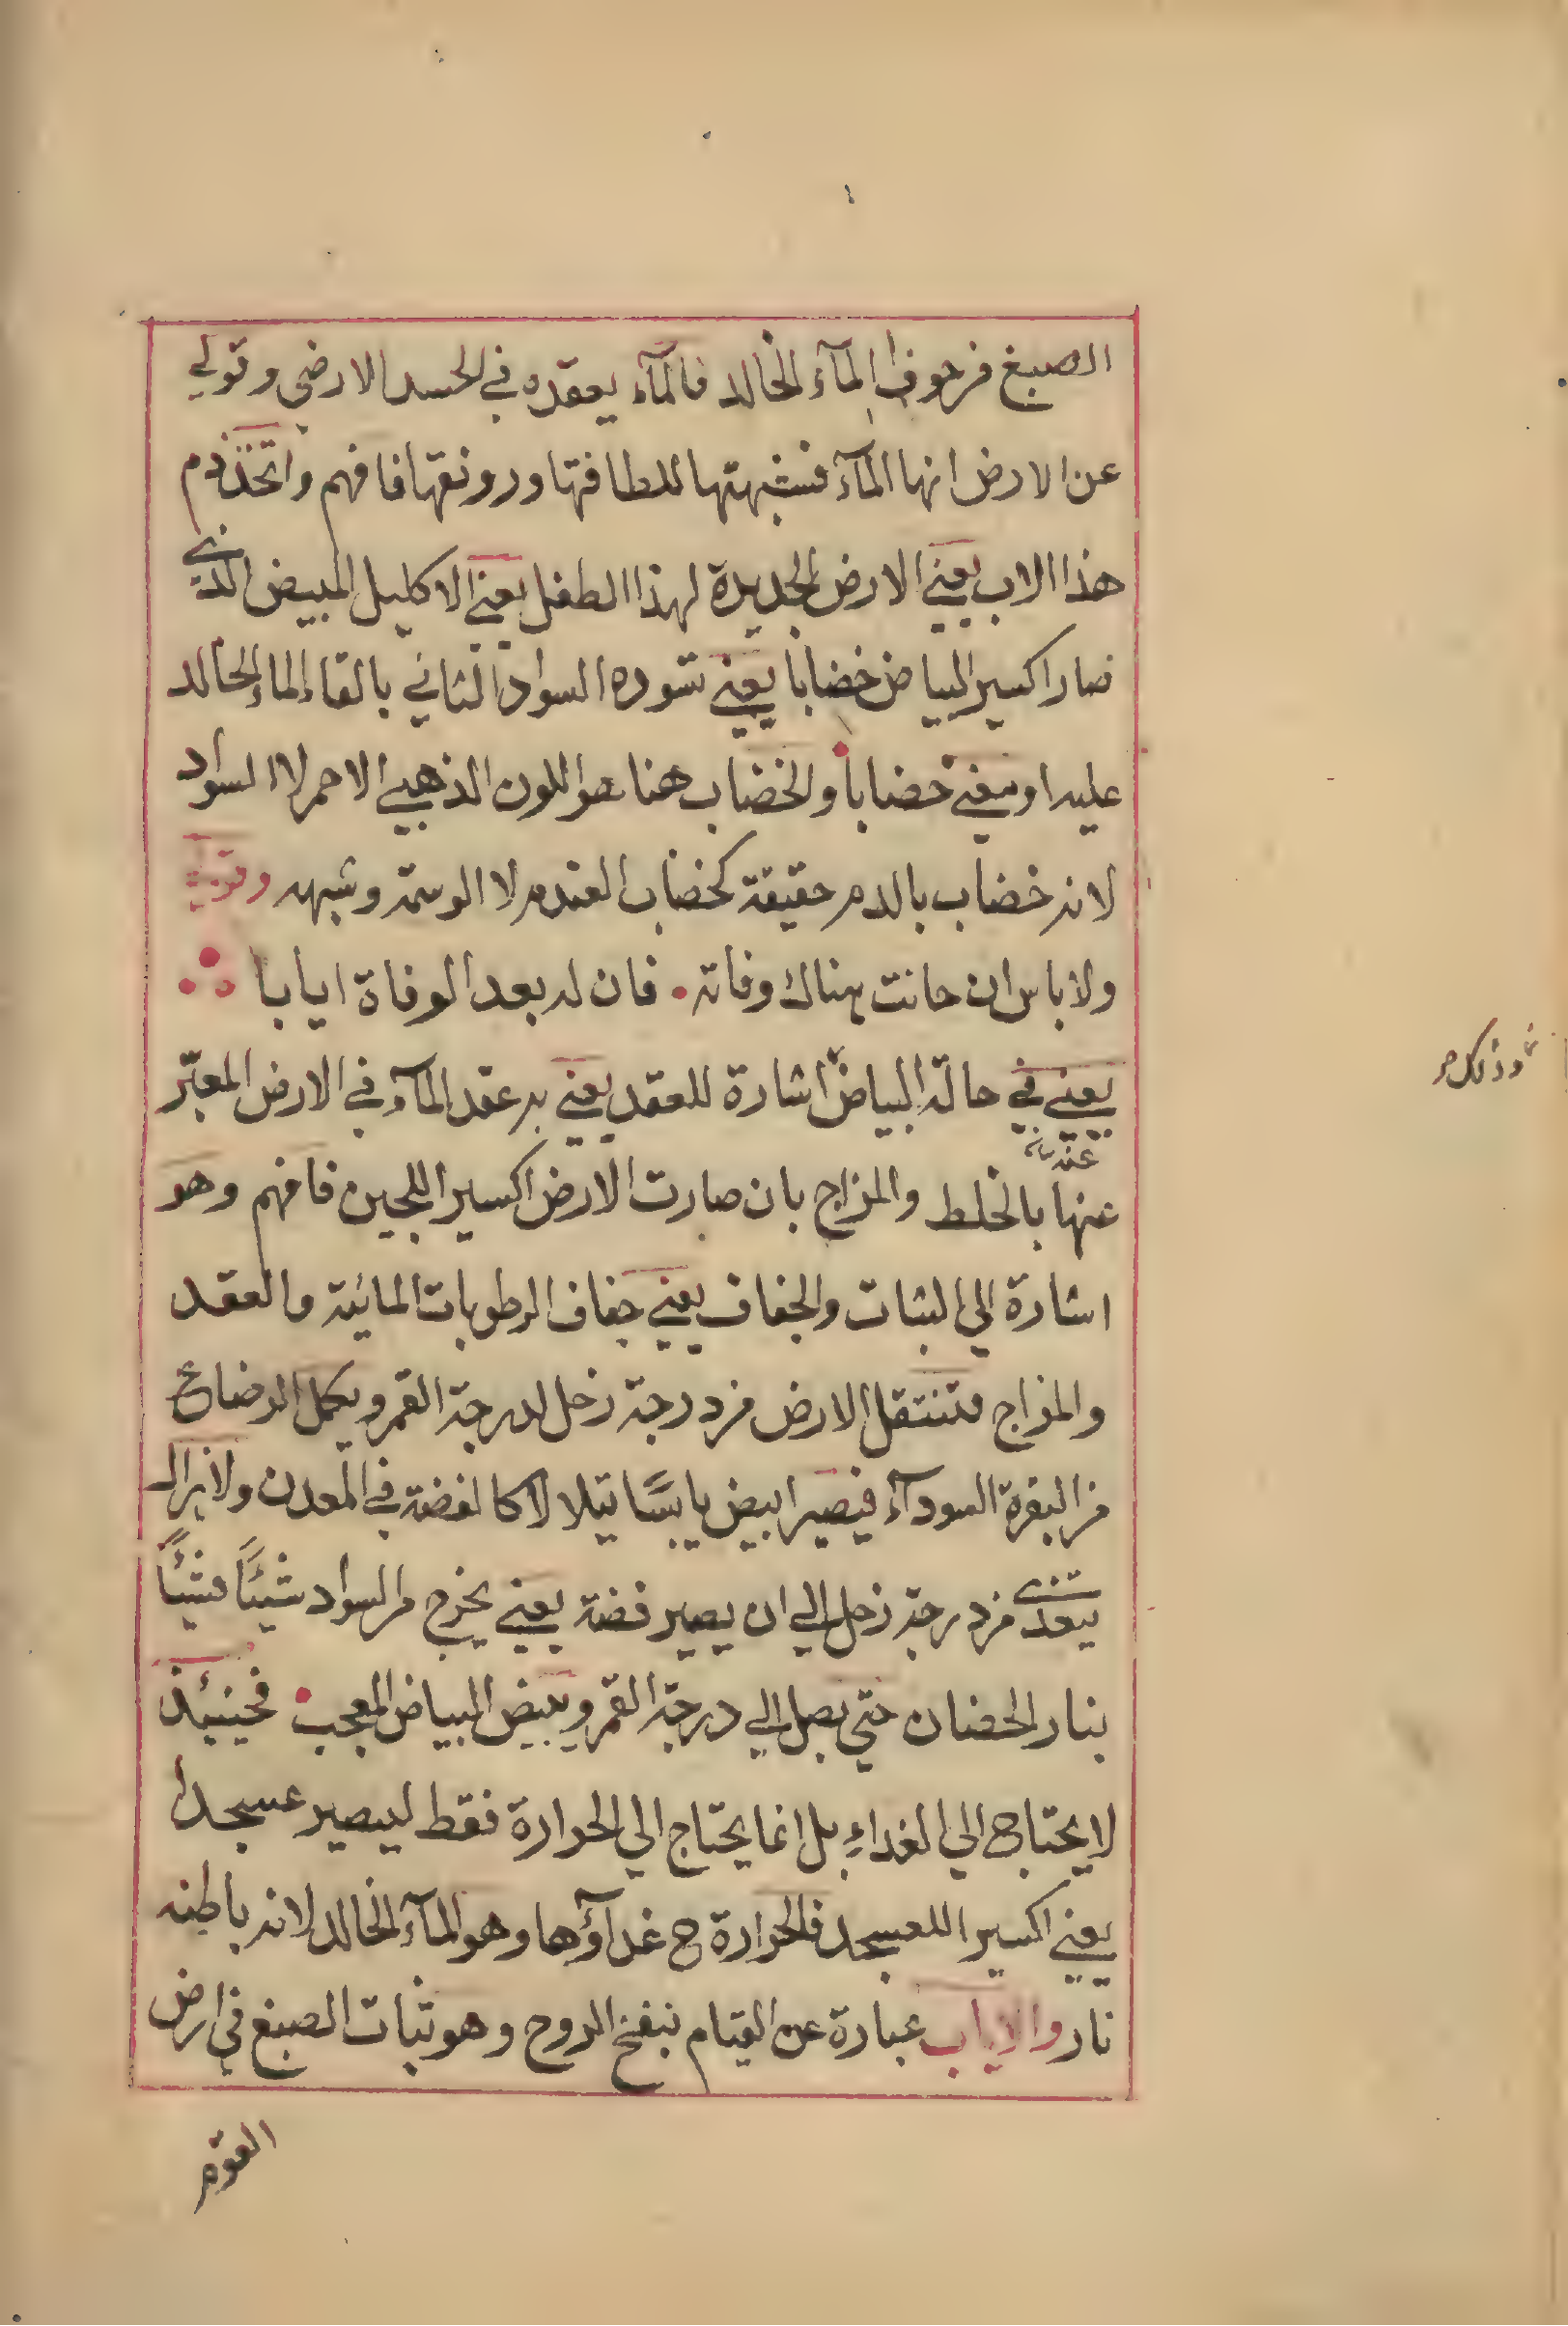 الصبغ من جوف الماۤء الخالد فالماۤء يعقده في الجسد الارضي وقولي
عن الارض انها الماۤء فشبهتها للطافتها ورونقها فافهم واتخذ دم
هذا الاب يعني الارض الجديدة لهذا الطفل يعني الاكليل المبيض الذي
صار اكسير البياض خضابا يعني تسوده السواد الثاني بالقاء الماء الخالد
عليه او معنى خضاباً والخضاب هنا هو اللون الذهبي الاحمر لا السواد
لانه خضاب بالدم حقيقة كخضاب العندم لا الوسمة وشبهه وقولي
ولا باس ان حانت هناك وفاته . فان له بعد الوفاة ايابا
يعني في حالة البياض اشارة للعقد يعني به عقد الماۤء في الارض المعبّر
عنه
عنها بالخلط والمزاج بان صارت الارض اكسير اللجين فافهم وهو
اشارة الي الثبات والجفاف يعني جفاف الرطوبات المائية والعقد
والمزاج فتنتقل الارض من درجة زحل لدرجة القمر ويكمل الرضاع
من البقرة السوداۤء فيصير ابيض يابسًا يتلالا كالفضة في المعدن ولا يزال
يتعدى من درجة زحل الي ان يصير فضة يعني يخرج من السواد شيئًا فشيئًا
بنار الحضان حتي يصل الي درجة القمر ويبيض البياض المعجب . فحينئذ
لا يحتاج الي الغذاء بل انما يحتاج الي الحرارة فقط ليصير عسجدا
يعني اكسير العسجد فالحرارة ح غذاۤؤها وهو الماۤء الخالد لانه باطنه
نار والاياب عبارة عن القيام بنفخ الروح وهو ثبات الصبغ في ارض
القوم
وذلك